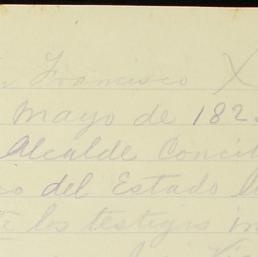 Francisco X
Mayo de 182
Alcalde Concil
del Estado l
los testigos in